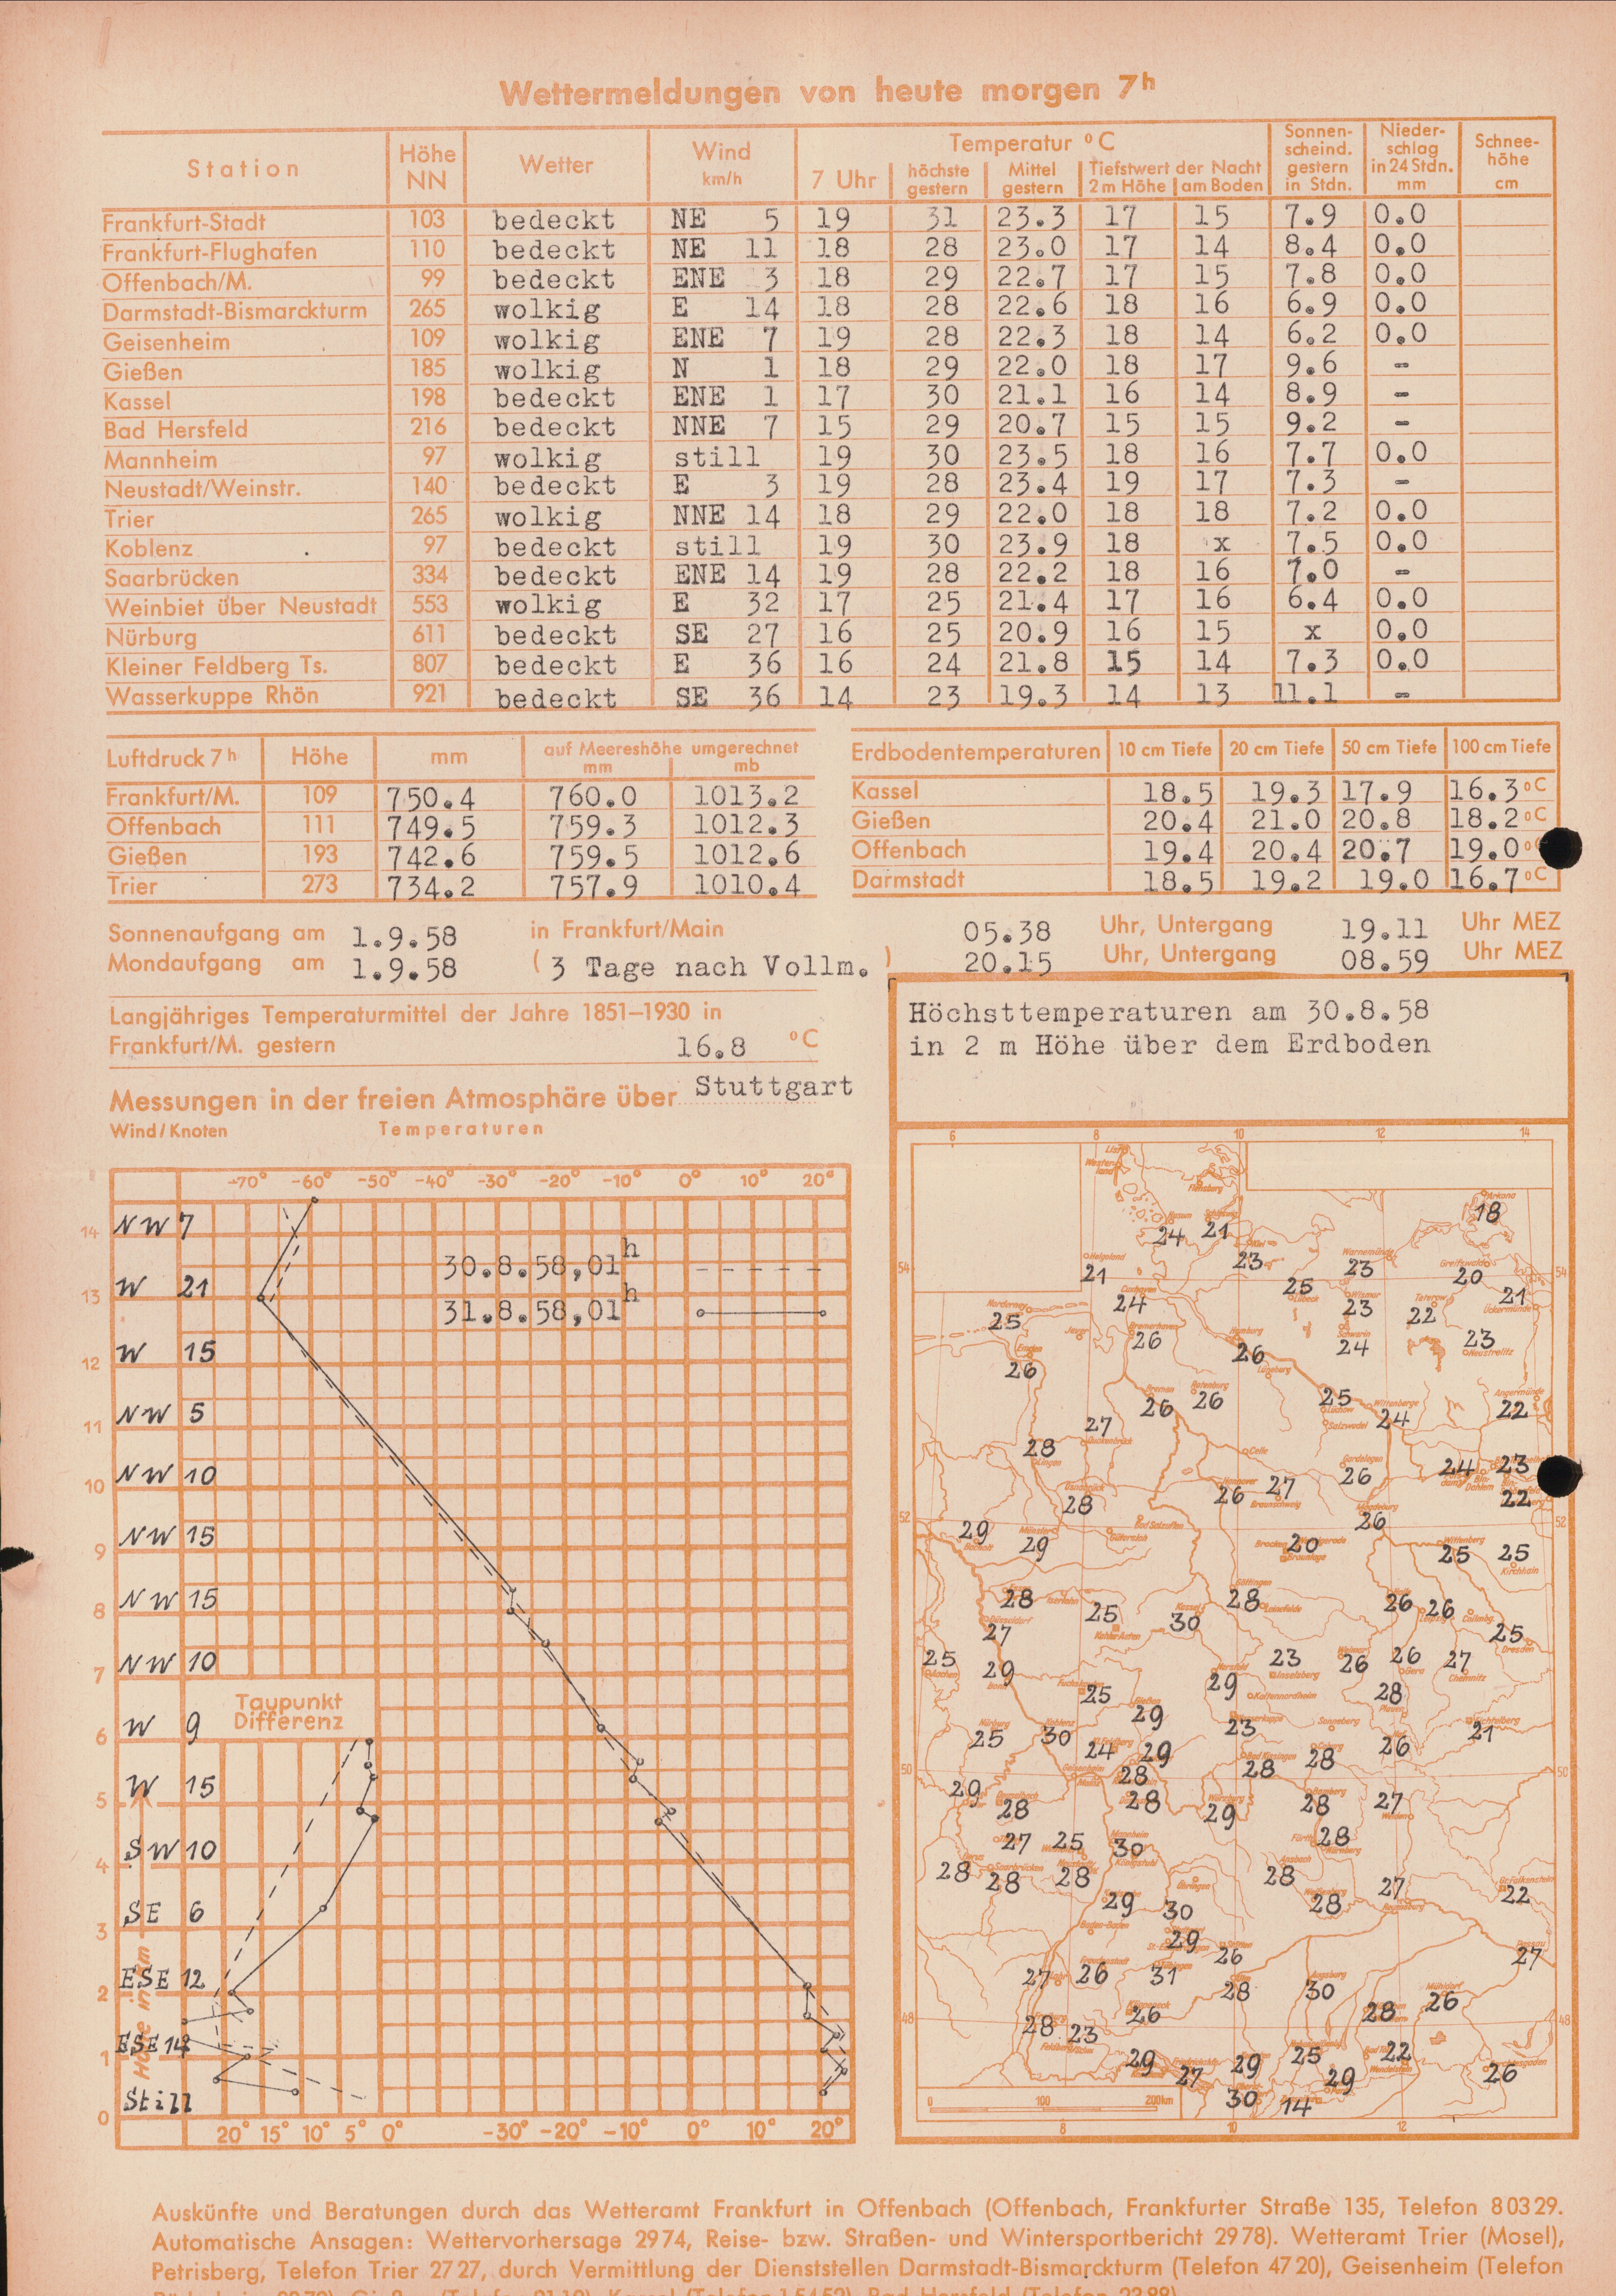 Wettermeldungen von heute morgen 7h
Station Höhe NN Wetter Wind km/h Temperatur °C Sonnenscheind. gestern in Stdn. Niederschlag in 24 Stdn. mm Schneehöhe cm
7 Uhr höchste gestern Mittel gestern Tiefstwert der Nacht 2 m Höhe am Boden
Frankfurt-Stadt 103 bedeckt NE 5 19 31 23.3 17 15 7.9 0.0
Frankfurt-Flughafen 110 bedeckt NE 11 18 28 23.0 17 14 8.4 0.0
Offenbach/M. 99 bedeckt ENE 3 18 29 22.7 17 15 7.8 0.0
Darmstadt-Bismarckturm 265 wolkig E 14 18 28 22.6 18 16 6.9 0.0
Geisenheim 109 wolkig ENE 7 19 28 22.3 18 14 6.2 0.0
Gießen 185 wolkig N 1 18 29 22.0 18 17 9.6 -
Kassel 198 bedeckt ENE 1 17 30 21.1 16 14 8.9 -
Bad Hersfeld 216 bedeckt NNE 7 15 29 20.7 15 15 9.2 -
Mannheim 97 wolkig still 19 30 23.5 18 16 7.7 0.0
Neustadt/Weinstr. 140 bedeckt E 3 19 28 23.4 19 17 7.3 -
Trier 265 wolkig NNE 14 18 29 22.0 18 18 7.2 0.0
Koblenz 97 bedeckt still 19 30 23.9 18 x 7.5 0.0
Saarbrücken 334 bedeckt ENE 14 19 28 22.2 18 16 7.0 -
Weinbiet über Neustadt 553 wolkig E 32 17 25 21.4 17 16 6.4 0.0
Nürburg 611 bedeckt SE 27 16 25 20.9 16 15 x 0.0
Kleiner Feldberg Ts. 807 bedeckt E 36 16 24 21.8 15 14 7.3 0.0
Wasserkuppe Rhön 921 bedeckt SE 36 14 23 19.3 14 13 11.1 -
Luftdruck 7h Höhe mm auf Meereshöhe umgerechnet mm mb
Frankfurt/M. 109 750.4 760.0 1013.2
Offenbach 111 749.5 759.3 1012.3
Gießen 193 742.6 759.5 1012.6
Trier 273 734.2 757.9 1010.4
Erdbodentemperaturen 10 cm Tiefe 20 cm Tiefe 50 cm Tiefe 100 cm Tiefe
Kassel 18.5 19.3 17.9 16.3 °C
Gießen 20.4 21.0 20.8 18.2 °C
Offenbach 19.4 20.4 20.7 19.0 °
Darmstadt 18.5 19.2 19.0 16.7 °C
Sonnenaufgang am 1.9.58 in Frankfurt/Main 05.38 Uhr, Untergang 19.11 Uhr MEZ
Mondaufgang am 1.9.58 (3 Tage nach Vollm.) 20.15 Uhr, Untergang 08.59 Uhr MEZ
Langjähriges Temperaturmittel der Jahre 1851–1930 in
Frankfurt/M. gestern 16.8 °C
Messungen in der freien Atmosphäre über Stuttgart
Wind/Knoten Temperaturen
-70° -60° -50° -40° -30° -20° -10° 0° 10° 20°
14 NW 7
30.8.58,01h
13 W 21
31.8.58,01h
12 W 15
11 NW 5
10 NW 10
9 NW 15
8 NW 15
7 NW 10
Taupunkt
Differenz
6 W 9
5 W 15
4 SW 10
3 SE 6
2 ESE 12
1 ESE 14
0 Still
Höhe in km
20° 15° 10° 5° 0° -30° -20° -10° 0° 10° 20°
Höchsttemperaturen am 30.8.58
in 2 m Höhe über dem Erdboden
6 8 10 12 14
18
24 21
21 23 23 20
54 25 54
24 23 22 21
25 26 26 24 23
26
26 26 25 24 22
27
28 26 24 23
28 26 27 22
52 26 52
29 29 20 25 25
28 25 30 28 26 26
27 25
25 29 29 23 26 26 27
25 29 28
25 30 24 29 23 28 26 21
50 28 28 50
29 28 28 29 28 27
27 25 30 28
28 28 28 28 27 22
29 30 28
29 26 27
27 26 31 28 30
26 28 26
48 28 23 48
29 27 29 25 22 26
30 14 29
0 100 200km
8 10 12
Auskünfte und Beratungen durch das Wetteramt Frankfurt in Offenbach (Offenbach, Frankfurter Straße 135, Telefon 80329.
Automatische Ansagen: Wettervorhersage 2974, Reise- bzw. Straßen- und Wintersportbericht 2978). Wetteramt Trier (Mosel),
Petrisberg, Telefon Trier 2727, durch Vermittlung der Dienststellen Darmstadt-Bismarckturm (Telefon 4720), Geisenheim (Telefon